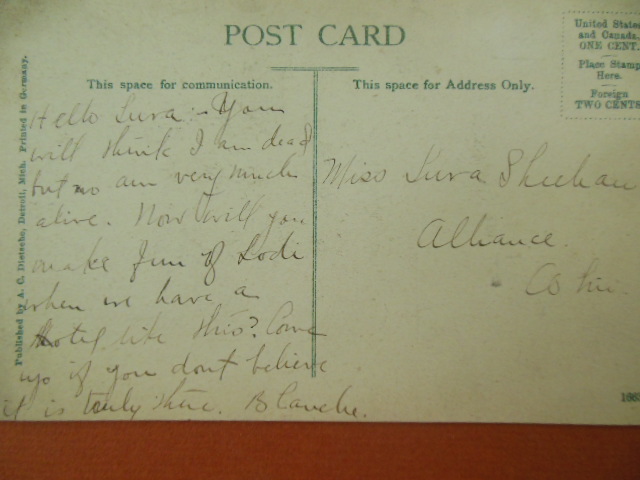 POST CARD
This space for communication.
This space for Address Only.
United States
and Canada,
ONE CENT.
Place Stamp
Here.
Foreign
TWO CENTS
Published by A. C. Dietsche, Detroit, Mich. Printed in Germany.
Hello Lura:- You
will think I am dead
but no am very much
alive. Now will you
make fun of Lodi
when we have a
Hotel like this? Come
up if you dont believe
it is truly there. Blanche.
Miss Lura Sheehan
Alliance.
Ohio.